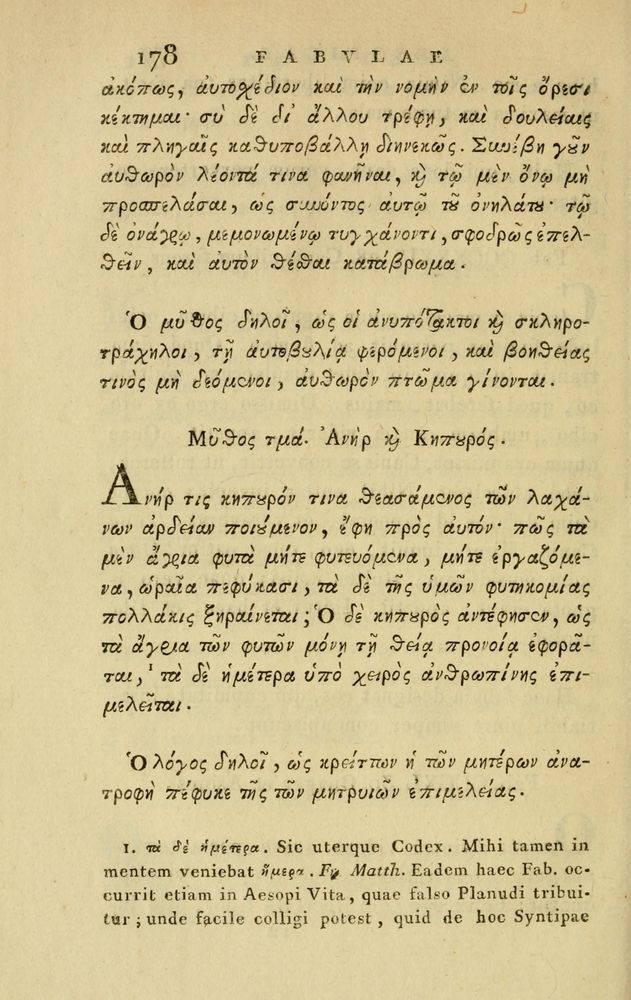 178 FABVLAE
ἀκόπως, ἀυτοχέδιον καὶ τὴν νομὴν ἐν τοῖς ὄρεσι
κέκτημαι· σὺ δὲ δι' ἄλλου τρέφῃ, καὶ δουλείαις
καὶ πληγαῖς καθυποβάλλῃ διηνεκῶς. Συνέβη γοῦν
ἀυθωρὸν λέοντά τινα φανῆναι, καὶ τῷ μὲν ὄνῳ μὴ
προσπελάσαι, ὡς συνόντος αὐτῷ τοῦ ὀνηλάτου· τῷ
δὲ ὀνάγρῳ, μεμονωμένῳ τυγχάνοντι, σφοδρῶς ἐπελ-
θεῖν, καὶ ἀυτὸν θέσθαι κατάβρωμα.
Ὁ μῦθος δηλοῖ, ὡς οἱ ἀνυπότακτοι καὶ σκληρο-
τράχηλοι, τῇ ἀυτοβουλίᾳ φερόμενοι, καὶ βοηθείας
τινὸς μὴ δεόμενοι, ἀυθωρὸν πτῶμα γίνονται.
Μῦθος τμά. Ἀνὴρ καὶ Κηπουρός.
Ἀνήρ τις κηπουρόν τινα θεασάμενος τῶν λαχά-
νων ἀρδείαν ποιούμενον, ἔφη πρὸς αὐτόν· πῶς τὰ
μὲν ἄγρια φυτὰ μήτε φυτευόμενα, μήτε ἐργαζόμε-
να, ὡραῖα πεφύκασι, τὰ δὲ τῆς ὑμῶν φυτηκομίας
πολλάκις ξηραίνεται; Ὁ δὲ κηπουρὸς ἀντέφησεν, ὡς
τὰ ἄγρια τῶν φυτῶν μόνῃ τῇ θείᾳ προνοίᾳ ἐφορᾶ-
ται,¹ τὰ δὲ ἡμέτερα ὑπὸ χειρὸς ἀνθρωπίνης ἐπι-
μελεῖται.
Ὁ λόγος δηλοῖ, ὡς κρείττων ἡ τῶν μητέρων ἀνα-
τροφὴ πέφυκε τῆς τῶν μητρυιῶν ἐπιμελείας.
1. τὰ δὲ ἡμέτερα. Sic uterque Codex. Mihi tamen in
mentem veniebat ἥμερα. Fr. Matth. Eadem haec Fab. oc-
currit etiam in Aesopi Vita, quae falso Planudi tribui-
tur; unde facile colligi potest, quid de hoc Syntipae